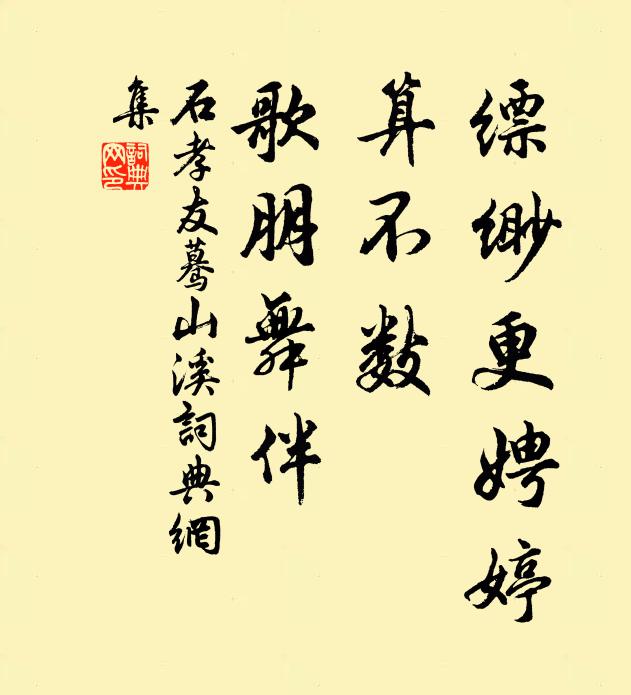 缥缈更娉婷
算不数
歌朋舞伴
石孝友蓦山溪詞典網
集
詞典
网印